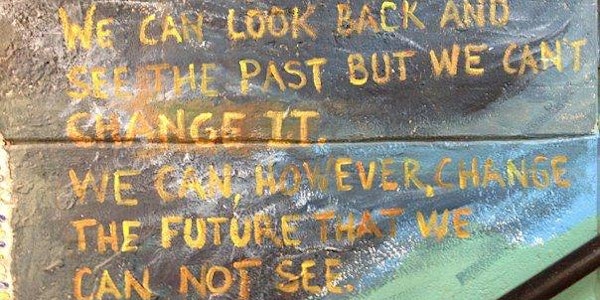 WE CAN LOOK BACK AND
SEE THE PAST BUT WE CAN'T
CHANGE IT.
WE CAN, HOWEVER, CHANGE
THE FUTURE THAT WE
CAN NOT SEE.